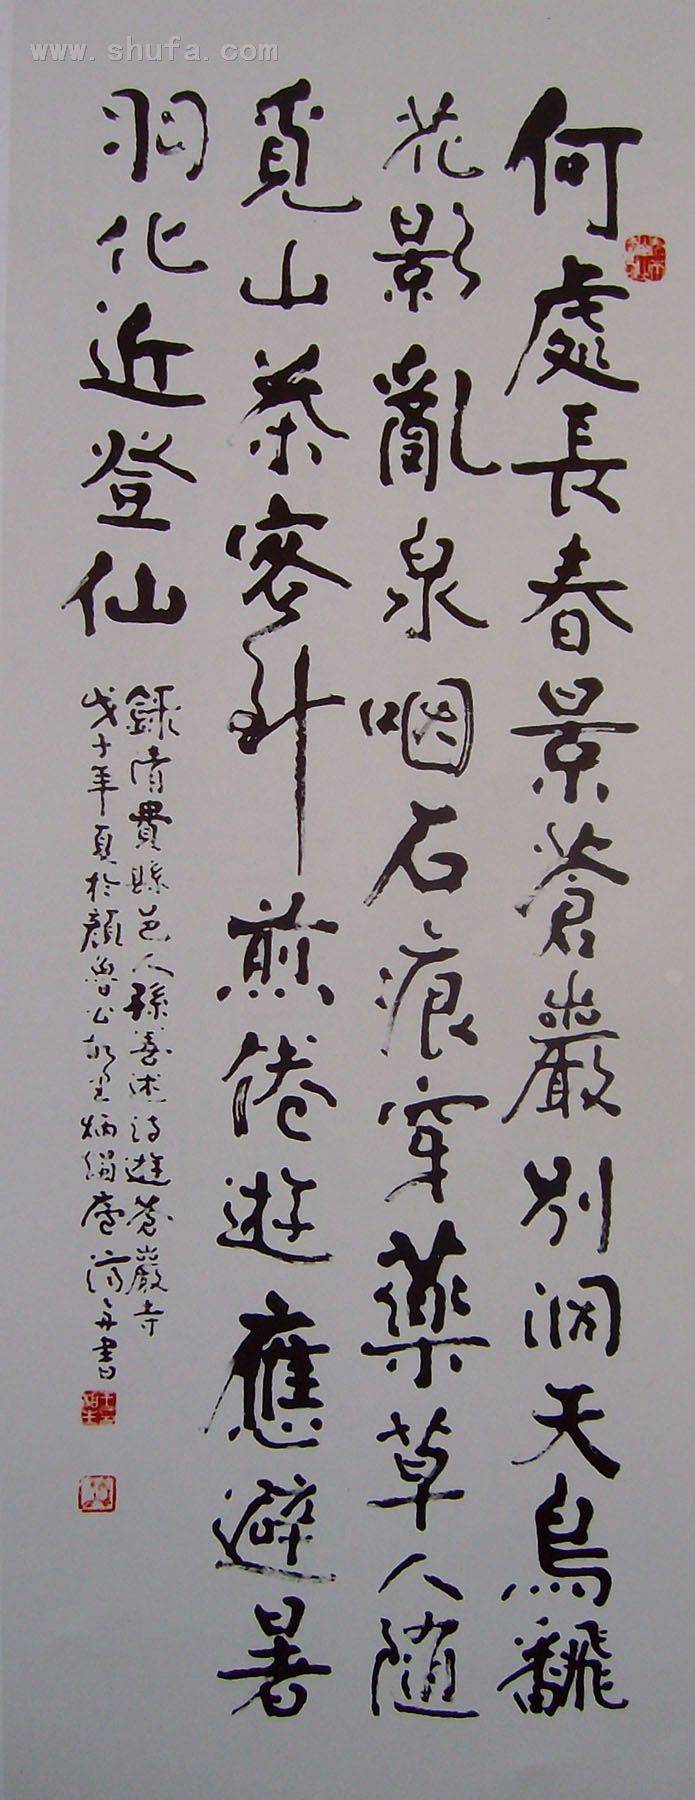 www.shufa.com
何處長春景蒼巖別洞天鳥飜
花影亂泉咽石痕穿藥草人隨
覓山茶客斗煎倦遊應避暑
羽化近登仙
錄清貫縣邑人孫善述詩遊蒼巖寺
戊子年夏於顏魯公故里炳絹廬濟舟書